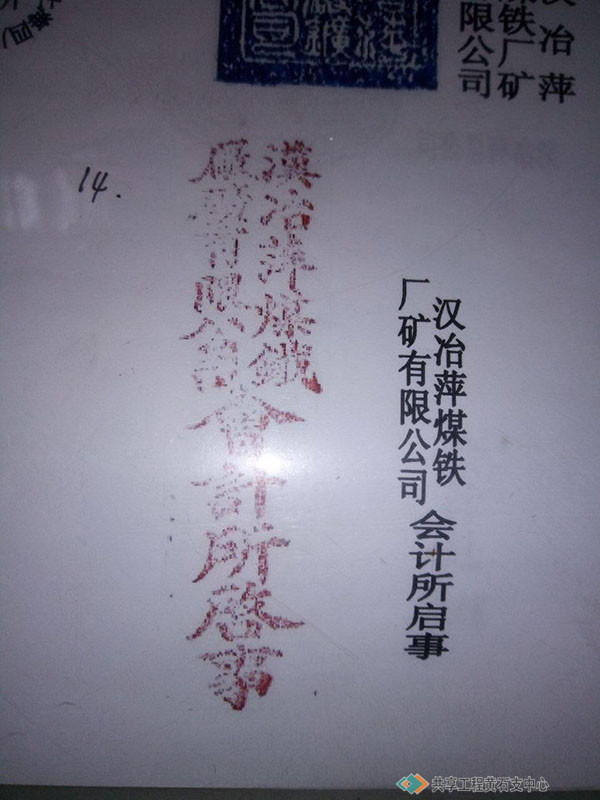 冶萍
铁厂矿
有限公司
14.
漢冶萍煤鐵
廠礦有限公司
會計所啓事
汉冶萍煤铁
厂矿有限公司
会计所启事
共享工程黄石支中心